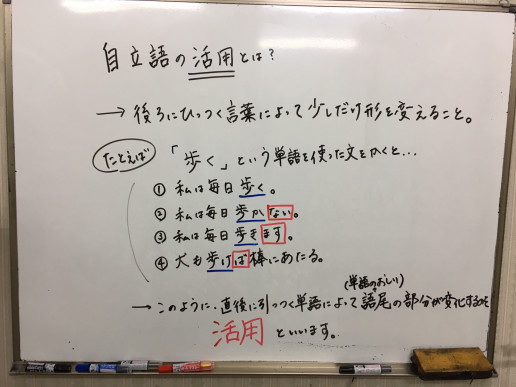 自立語の活用とは?
→ 後ろにひっつく言葉によって少しだけ形を変えること。
たとえば 「歩く」という単語を使った文をかくと…
① 私は毎日歩く。
② 私は毎日歩かない。
③ 私は毎日歩きます。
④ 犬も歩けば棒にあたる。
(単語のおしり)
→ このように、直後に引っつく単語によって語尾の部分が変化するのを
活用 といいます。